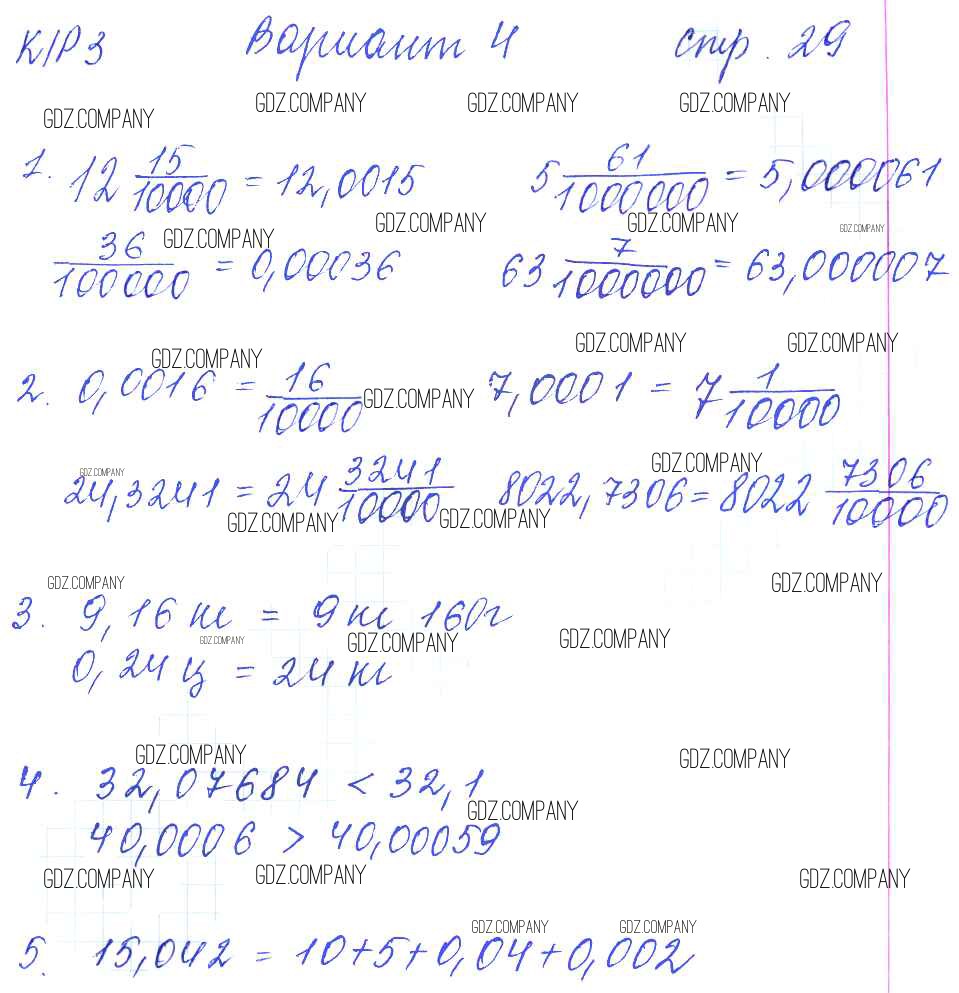 К/Р 3 Вариант 4 стр. 29
GDZ.COMPANY GDZ.COMPANY GDZ.COMPANY GDZ.COMPANY
1. 12 15/10000 = 12,0015 5 61/1000000 = 5,000061
GDZ.COMPANY GDZ.COMPANY GDZ.COMPANY GDZ.COMPANY
36/100000 = 0,00036 63 7/1000000 = 63,000007
GDZ.COMPANY GDZ.COMPANY GDZ.COMPANY
2. 0,0016 = 16/10000 GDZ.COMPANY 7,0001 = 7 1/10000
GDZ.COMPANY GDZ.COMPANY
24,3241 = 24 3241/10000 8022,7306 = 8022 7306/10000
GDZ.COMPANY GDZ.COMPANY
GDZ.COMPANY GDZ.COMPANY
3. 9,16 кг = 9 кг 160 г
GDZ.COMPANY GDZ.COMPANY GDZ.COMPANY
0,24 ц = 24 кг
GDZ.COMPANY GDZ.COMPANY
4. 32,07684 < 32,1
GDZ.COMPANY
40,0006 > 40,00059
GDZ.COMPANY GDZ.COMPANY GDZ.COMPANY
GDZ.COMPANY GDZ.COMPANY
5. 15,042 = 10+5+0,04+0,002